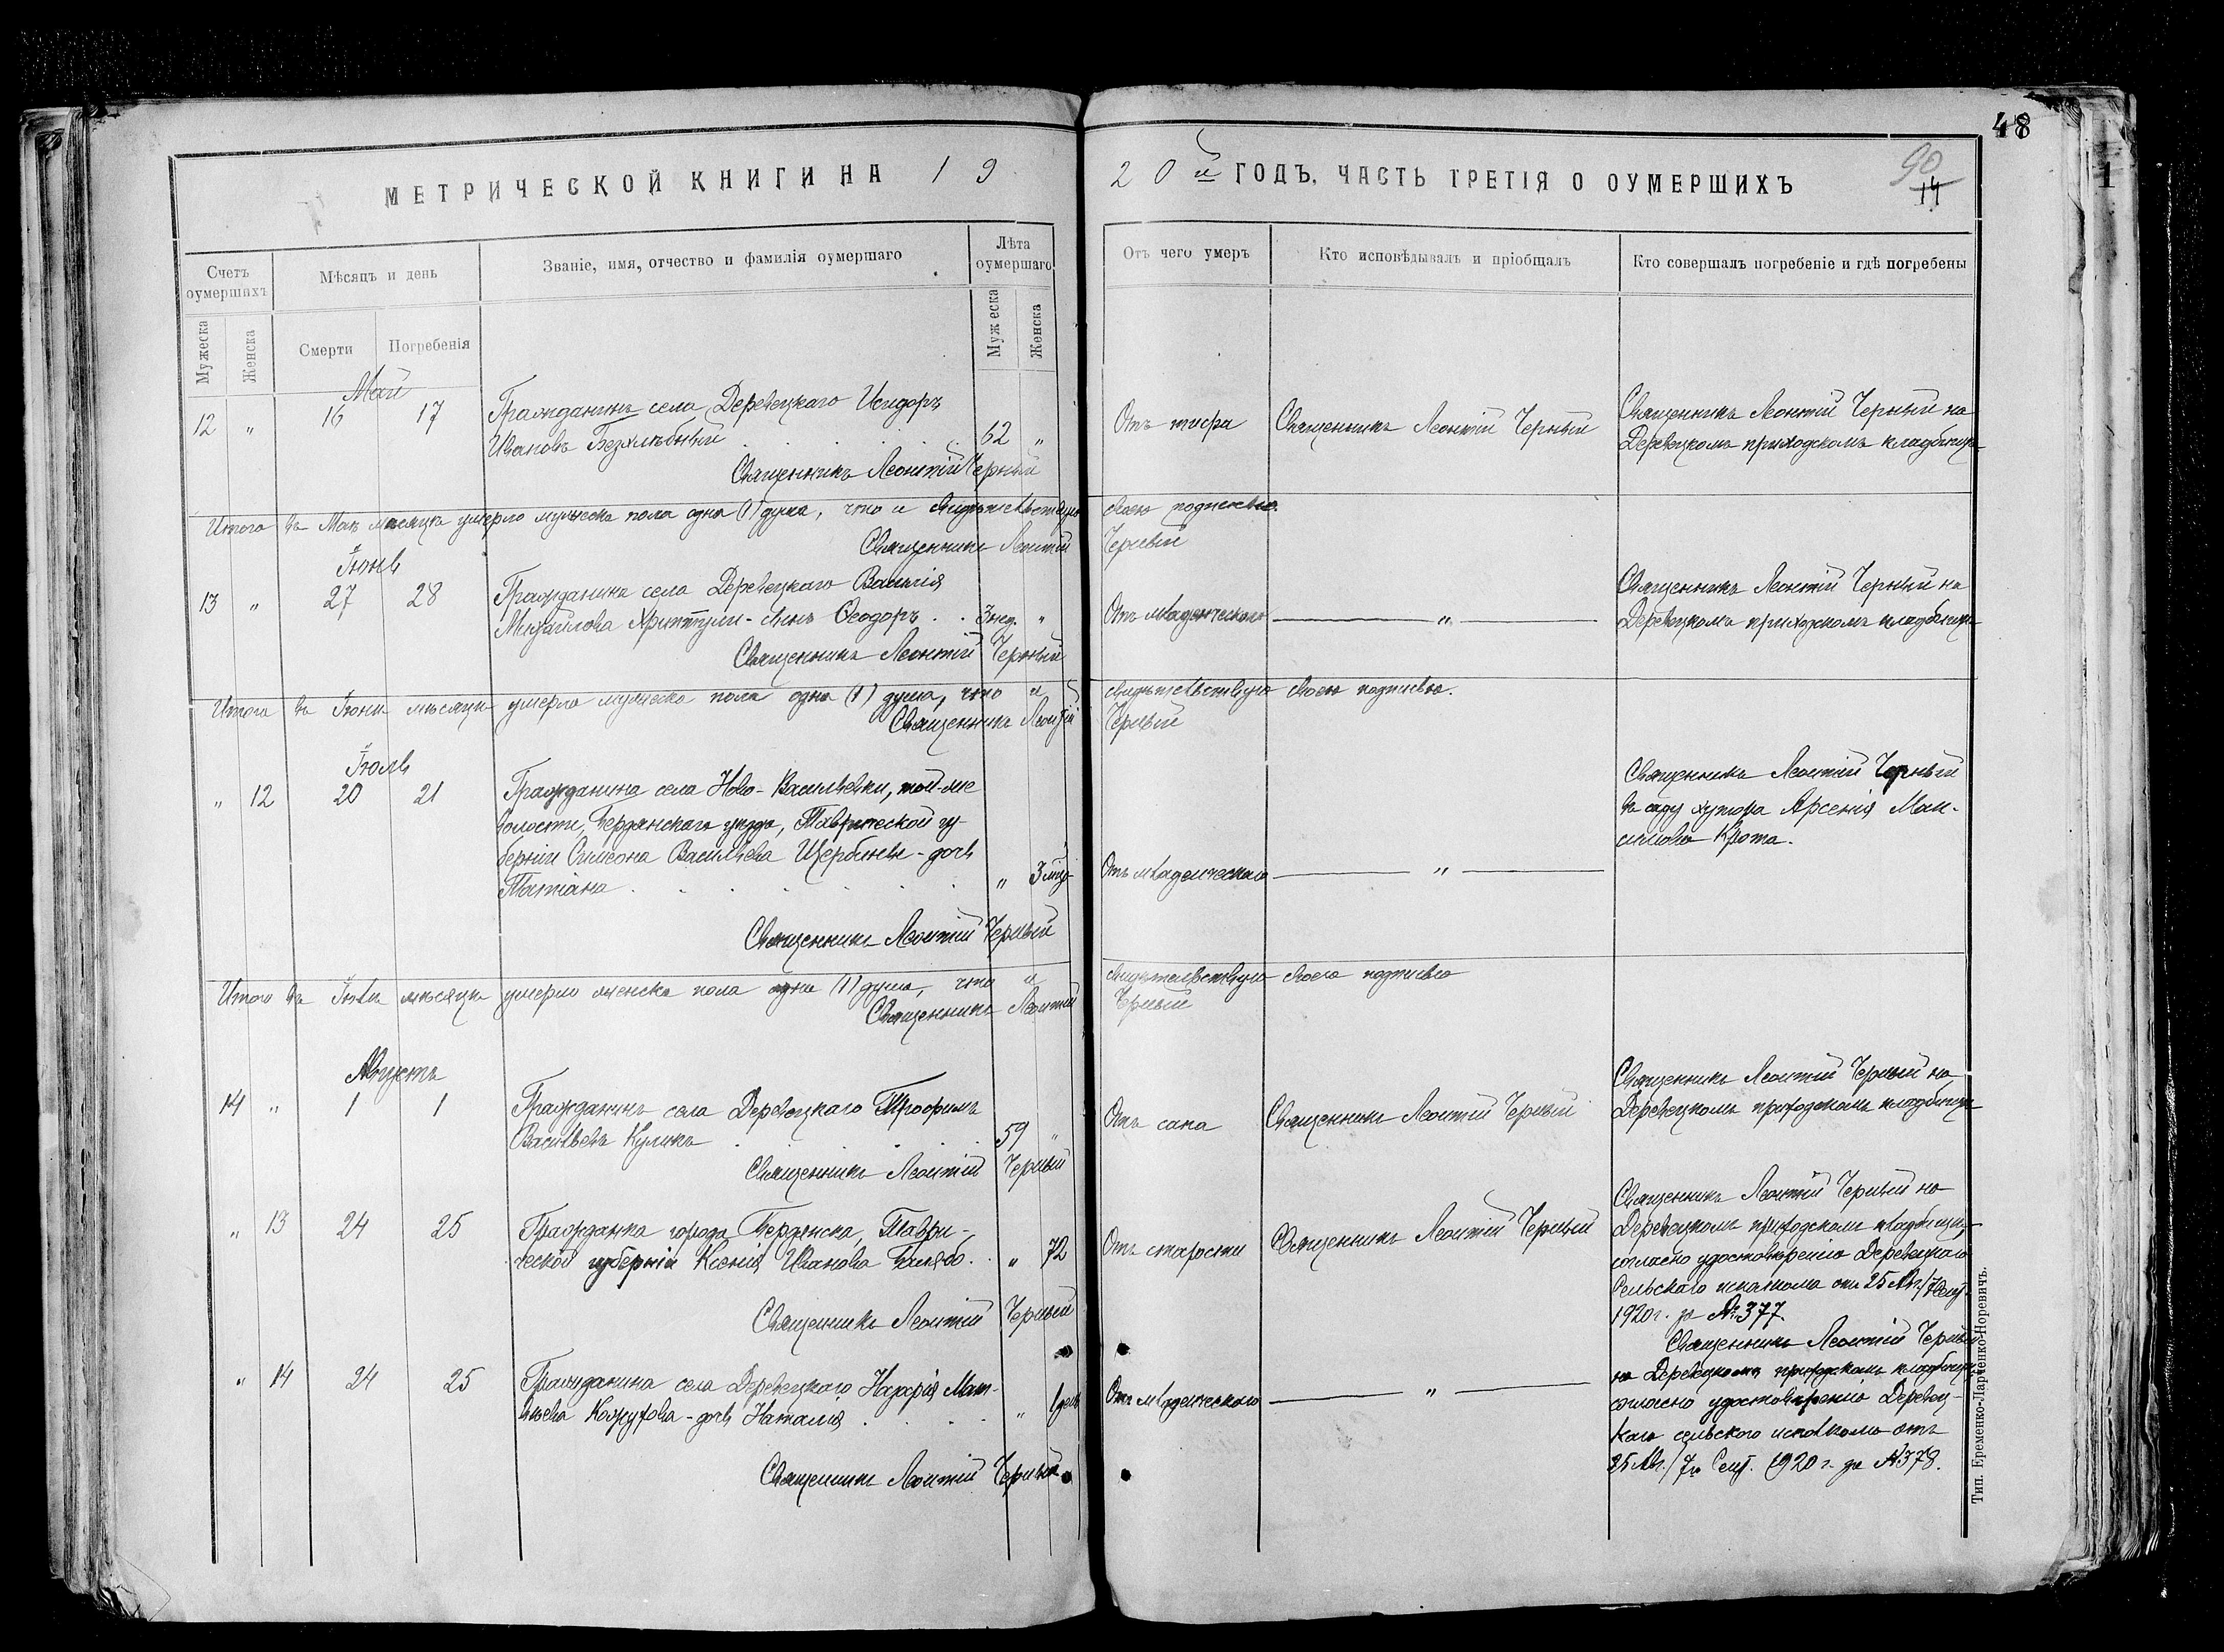 48
90
14
МЕТРИЧЕСКОЙ КНИГИ НА 19
20й ГОДЪ, ЧАСТЬ ТРЕТІЯ О ОУМЕРШИХЪ
Счетъ оумершихъ
Мѣсяцъ и день
Званіе, имя, отчество и фамилія оумершаго
Лѣта оумершаго
Отъ чего умеръ
Кто исповѣдывалъ и пріобщалъ
Кто совершалъ погребеніе и гдѣ погребены
Мужеска
Женска
Смерти
Погребенія
Мужеска
Женска
Май
12 " 16 17
Гражданинъ села Деревецкаго Исидоръ
Ивановъ Безхлѣбный 62 "
Священникъ Леонтій Черный
Отъ тифа
Священникъ Леонтій Черный
Священникъ Леонтій Черный на
Деревецкомъ приходскомъ кладбищѣ
Итого въ Маѣ мѣсяцѣ умерло мужеска пола одна (1) душа, что и свидѣтельствую своею подписью.
Священникъ Леонтій Черный
Іюнь
13 " 27 28
Гражданина села Деревецкаго Василія
Михайлова - сынъ Ѳеодоръ 3 нед. "
Священникъ Леонтій Черный
Отъ младенческаго
"
Священникъ Леонтій Черный на
Деревецкомъ приходскомъ кладбищѣ
Итого въ Іюнѣ мѣсяцѣ умерло мужеска пола одна (1) душа, что и свидѣтельствую своею подписью.
Священникъ Леонтій Черный
Іюль
" 12 20 21
Гражданина села Ново-Васильевки, той-же
волости, Бердянскаго уѣзда, Таврической гу-
берніи Симеона Васильева Щербины - дочь
Татіана " 3 мѣс.
Священникъ Леонтій Черный
Отъ младенческаго
"
Священникъ Леонтій Черный
въ саду хутора Арсенія Мак-
симова Крота.
Итого въ Іюлѣ мѣсяцѣ умерло женска пола одна (1) душа, что и свидѣтельствую своею подписью
Священникъ Леонтій Черный
Августъ
14 " 1 1
Гражданинъ села Деревецкаго Трофимъ
Васильевъ Куликъ 59 "
Священникъ Леонтій Черный
Отъ сапа
Священникъ Леонтій Черный
Священникъ Леонтій Черный на
Деревецкомъ приходскомъ кладбищѣ
" 13 24 25
Гражданка города Бердянска, Таври-
ческой губерніи Ксенія Иванова " 72
Священникъ Леонтій Черный
Отъ старости
Священникъ Леонтій Черный
Священникъ Леонтій Черный на
Деревецкомъ приходскомъ кладбищѣ,
согласно удостовѣренію Деревецкаго
Сельскаго исполкома отъ 25 Авг./7 Сент.
1920 г. за № 377.
" 14 24 25
Гражданина села Деревецкаго Назарія Мат-
вѣева Кожухова - дочь Наталія " 1 день
Священникъ Леонтій Черный
Отъ младенческаго
"
Священникъ Леонтій Черный
на Деревецкомъ приходскомъ кладбищѣ,
согласно удостовѣренію Деревец-
каго сельскаго исполкома отъ
25 Авг./7 Сент. 1920 г. за № 378.
Тип. Еременко-Ларченко-Норевичъ.
1